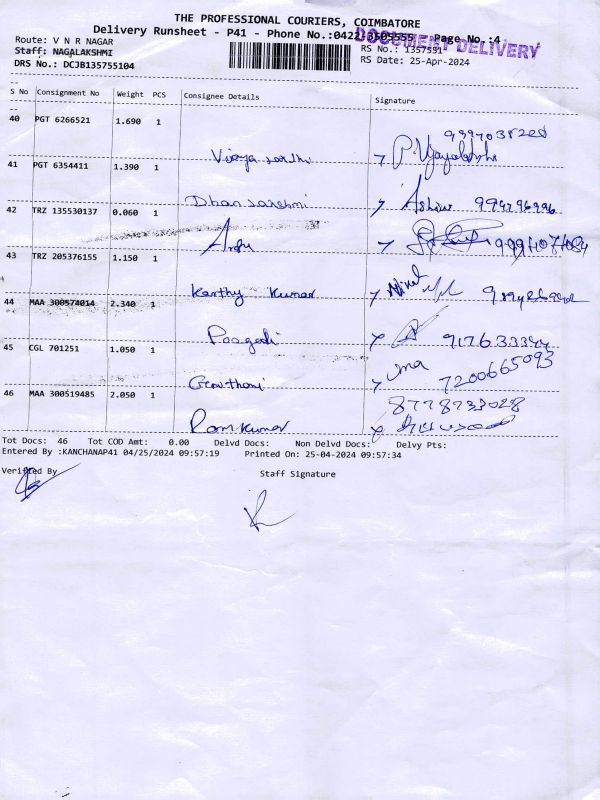 THE PROFESSIONAL COURIERS, COIMBATORE
Delivery Runsheet - P41 - Phone No.:0422-3505555 Page No.:4
DOCUMENT DELIVERY
Route: V N R NAGAR
RS No.: 1357591
Staff: NAGALAKSHMI
RS Date: 25-Apr-2024
DRS No.: DCJB135755104
S No Consignment No Weight PCS Consignee Details Signature
40 PGT 6266521 1.690 1
41 PGT 6354411 1.390 1
Dhansarshmi
42 TRZ 135530137 0.060 1
43 TRZ 205376155 1.150 1
Karthy Kumar
44 MAA 300574014 2.340 1
45 CGL 701251 1.050 1
uma
7200665093
Gowthami
46 MAA 300519485 2.050 1
8778733028
Ram Kumar
Tot Docs: 46 Tot COD Amt: 0.00 Delvd Docs: Non Delvd Docs: Delvy Pts:
Entered By :KANCHANAP41 04/25/2024 09:57:19 Printed On: 25-04-2024 09:57:34
Verified By
Staff Signature